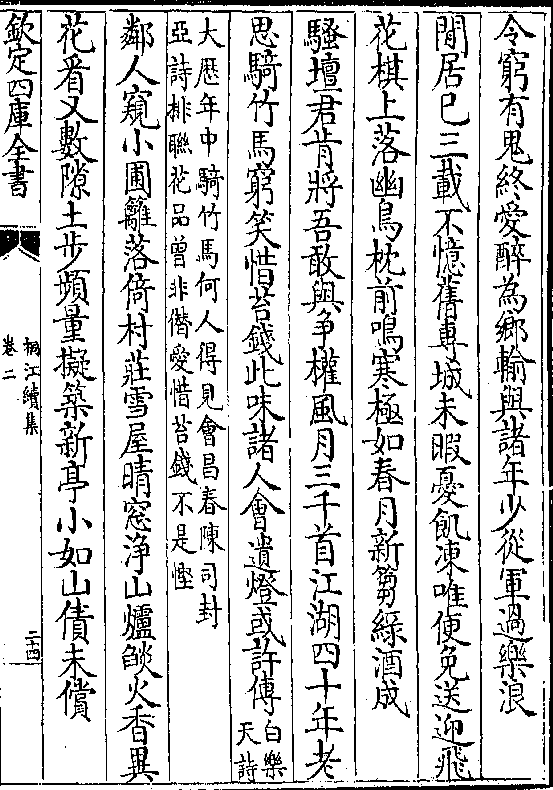 令窮有鬼終愛醉為鄉輸與諸年少從軍過樂浪
閒居已三載不憶舊專城未暇憂飢凍唯便免送迎飛
花棋上落幽鳥枕前鳴寒極如春月新篘綠酒成
騷壇君肯將吾敢與争權風月三千首江湖四十年老
思騎竹馬窮笑惜苔錢此味諸人會遺燈或許傳白樂天詩
大厯年中騎竹馬何人得見會昌春陳司封
亞詩排聨花品曾非僭愛惜苔錢不是慳
鄰人窺小圃籬落倚村莊雪屋晴窓净山爐燄火香異
花看又數隙土步頻量擬築新亭小如山債未償
欽定四庫全書
桐江續集
卷二
二十四